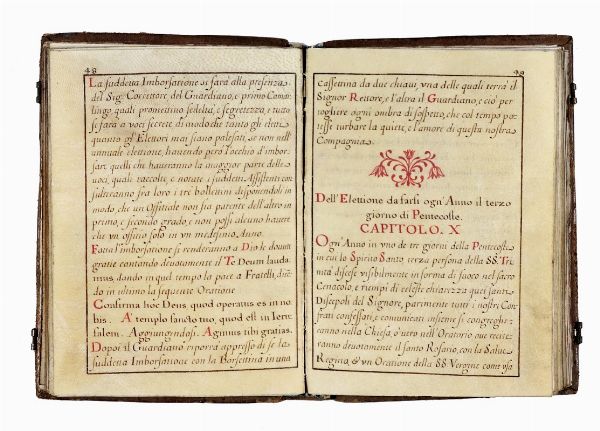 48
La suddetta Imborsatione si farà alla presenza
del Sigr Correttore del Guardiano, e primo Camar
lingo quali promettino fedeltà, e segretezza, e tutto
si farà a voci secrete di modo che tanto gli eletti
quanto gli Elettori mai siano palesati, se non nell'
annuale elettione, havendo però l'occhio d'imbor
sare quelli che haveranno la maggior parte delle
voci, quali raccolti, e notate i suddetti Assistenti con
sulteranno fra loro i tre bollettini disponendoli in
modo, che un Offitiale non sia parente dell'altro in
primo, e secondo grado, e non possi alcuno havere
che un offitio solo in un medesimo Anno.
Fatta l'imborsatione si renderanno a Dio le douute
gratie cantando deuotamente il Te Deum lauda
mus dando in quel tempo la pace a Fratelli, dicē
do in ultimo la seguente Oratione
Confirma hóc Deus, quod operatus es in no
bis. A' templo sancto tuo, quod est in Ieru
salem. Aggiungendosi. Agimus tibi gratias.
Dopoi il Guardiano riporrà appresso di se la
suddetta Imborsatione con la Borsettina in una
49
cassettina da due chiaui, una delle quali terrà il
Signor Rettore, e l'altra il Guardiano, e ciò per
togliere ogni ombra di sospetto, che col tempo po
tesse turbare la quiete, e l'amore di questa nostra
Compagnia.
Dell'Elettione da farsi ogn'Anno il terzo
giorno di Pentecoste.
CAPITOLO. X
Ogn'Anno in uno de tre giorni della Pentecoste
in cui lo Spirito Santo terza persona della SS. Tri
nità discese visibilmente in forma di fuoco nel sacro
Cenacolo, e riempì di celeste chiarezza quei santi
Discepoli del Signore, parimente tutti i nostri Con
frati confessati, e comunicati insieme si congreghe
ranno nella Chiesa, ò uero nell'Oratorio oue recite
ranno deuotamente il santo Rosario, con la Salue
Regina, & un Oratione della SS. Vergine come usa